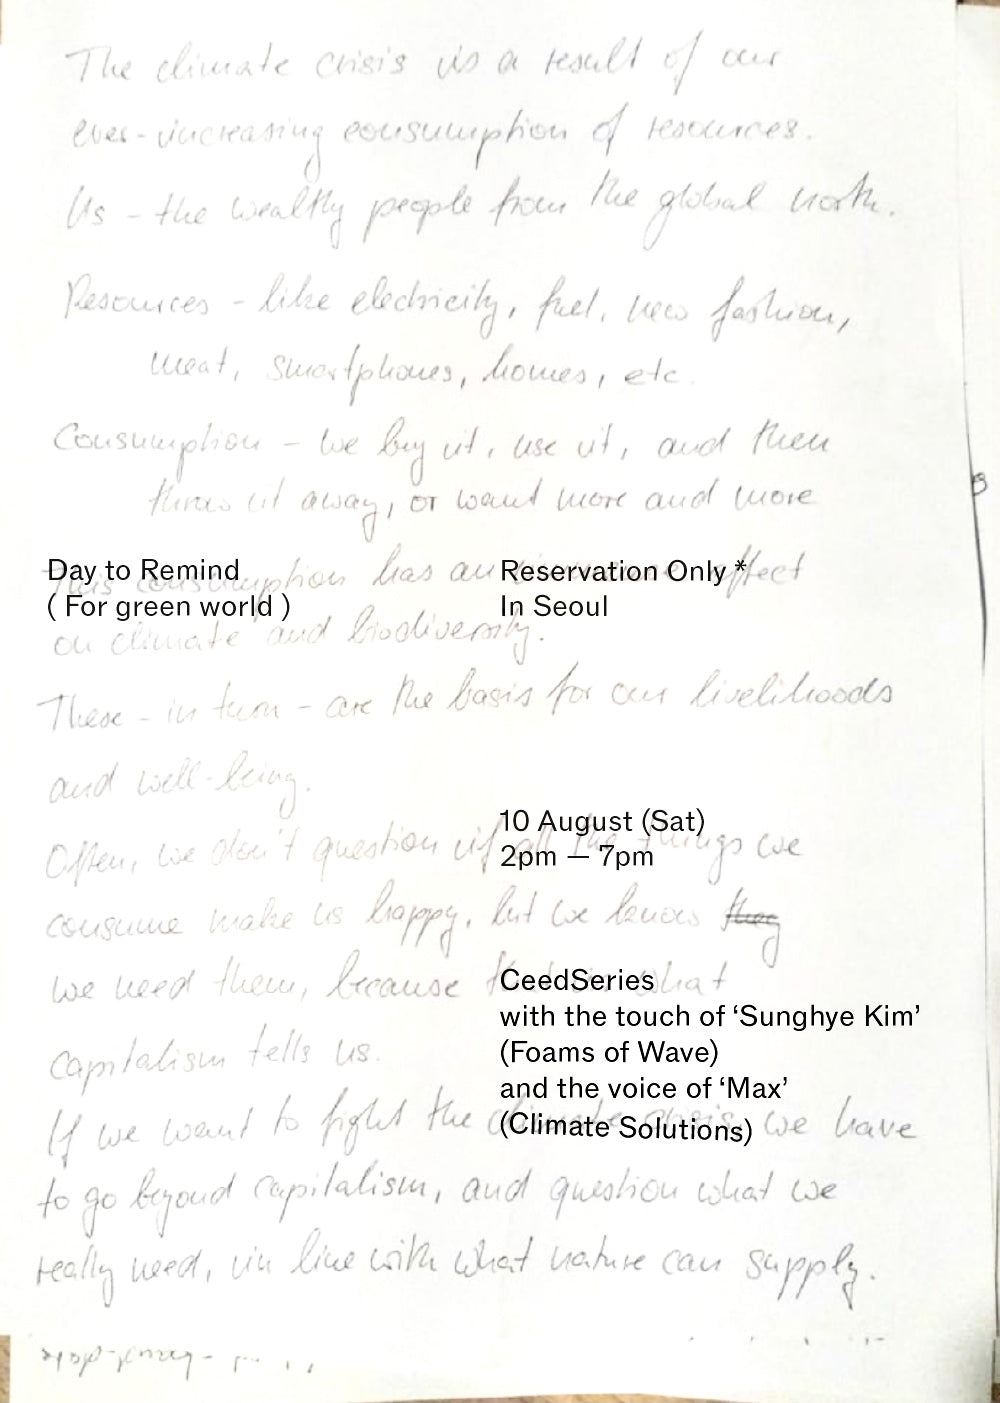 The climate crisis is a result of our
ever-increasing consumption of resources.
Us - the wealthy people from the global north.
Resources - like electricity, fuel, new fashion,
meat, smartphones, homes, etc.
Consumption - we buy it, use it, and then
throw it away, or want more and more
This consumption has an effect
on climate and biodiversity.
Day to Remind
( For green world )
Reservation Only *
In Seoul
These - in turn - are the basis for our livelihoods
and well-being.
10 August (Sat)
2pm — 7pm
Often, we don't question if all the things we
consume make us happy, but we know they
we need them, because what
capitalism tells us.
CeedSeries
with the touch of ‘Sunghye Kim’
(Foams of Wave)
and the voice of ‘Max’
(Climate Solutions)
If we want to fight the climate crisis, we have
to go beyond capitalism, and question what we
really need, in line with what nature can supply.